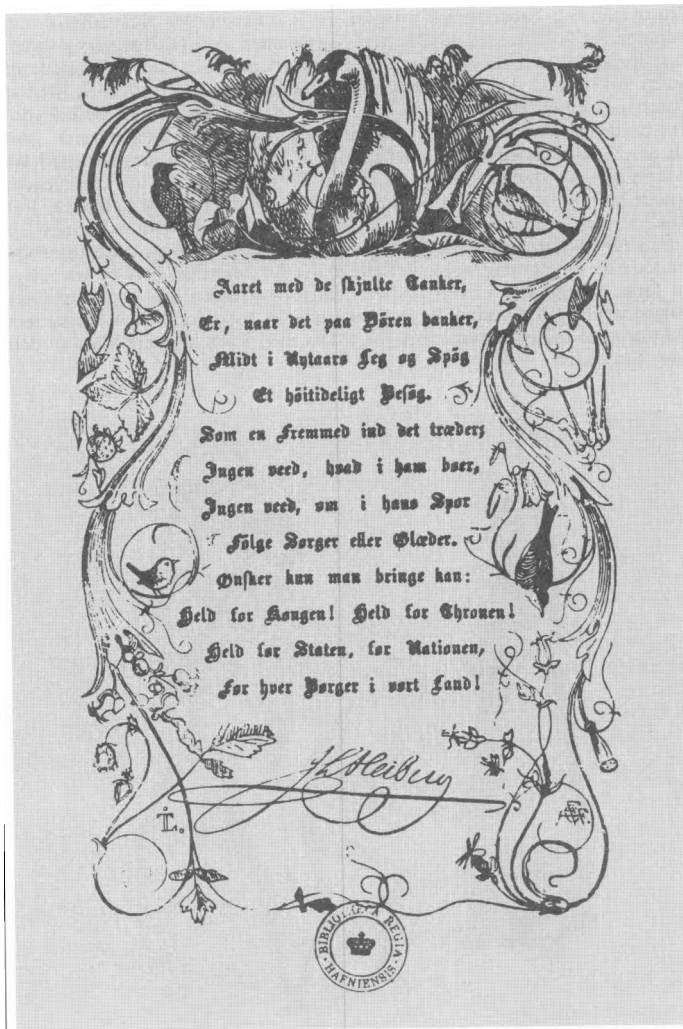 Aaret med de skjulte Tanker,
Er, naar det paa Dören banker,
Midt i Nytaars Leg og Spög
Et höitideligt Besög.
Som en Fremmed ind det træder;
Ingen veed, hvad i ham boer,
Ingen veed, om i hans Spor
Fölge Sorger eller Glæder.
Ønsker kun man bringe kan:
Held for Kongen! Held for Thronen!
Held for Staten, for Nationen,
For hver Borger i vort Land!
J L Heiberg
I.L.
BIBLIOTHECA REGIA
HAFNIENSIS